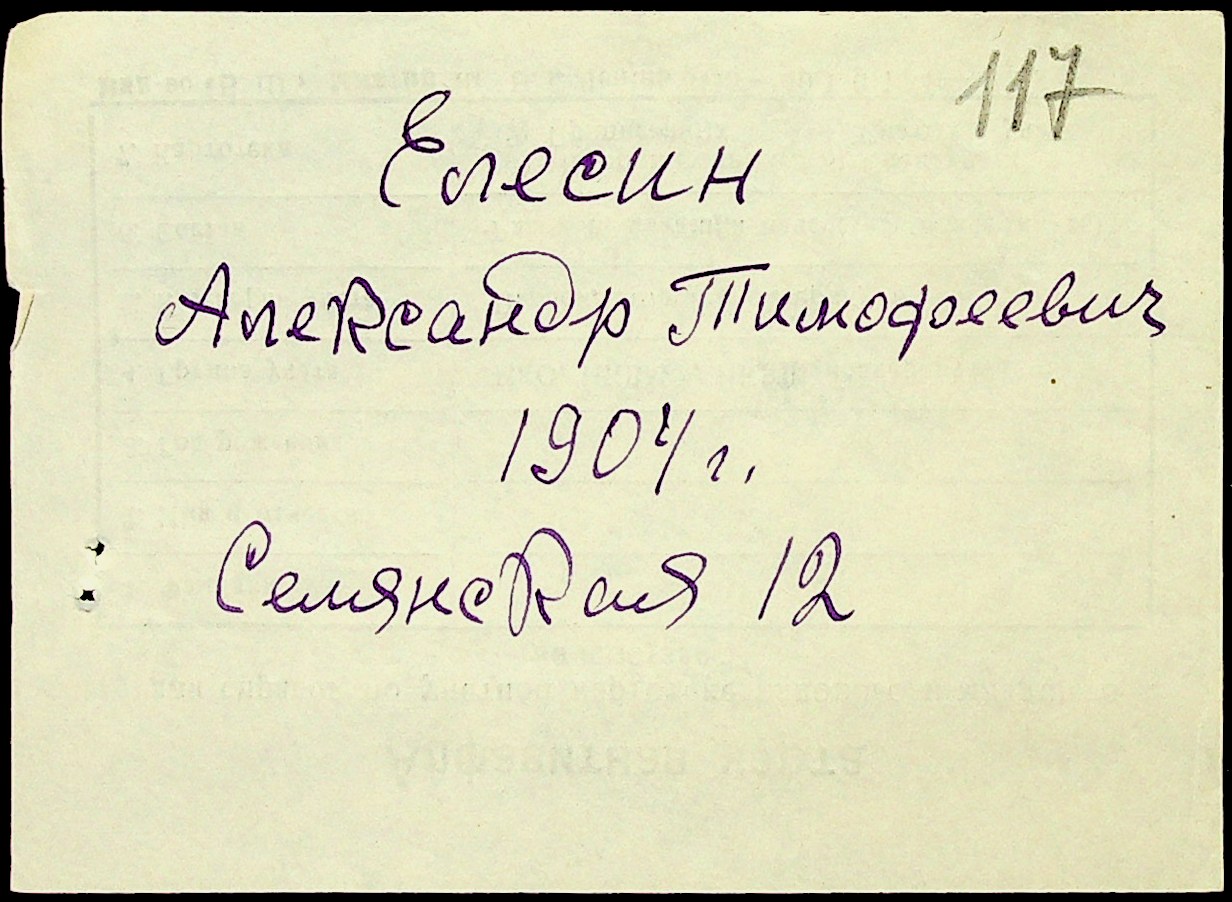 117
Елесин
Александр Тимофеевич
1904 г.
Семянская 12